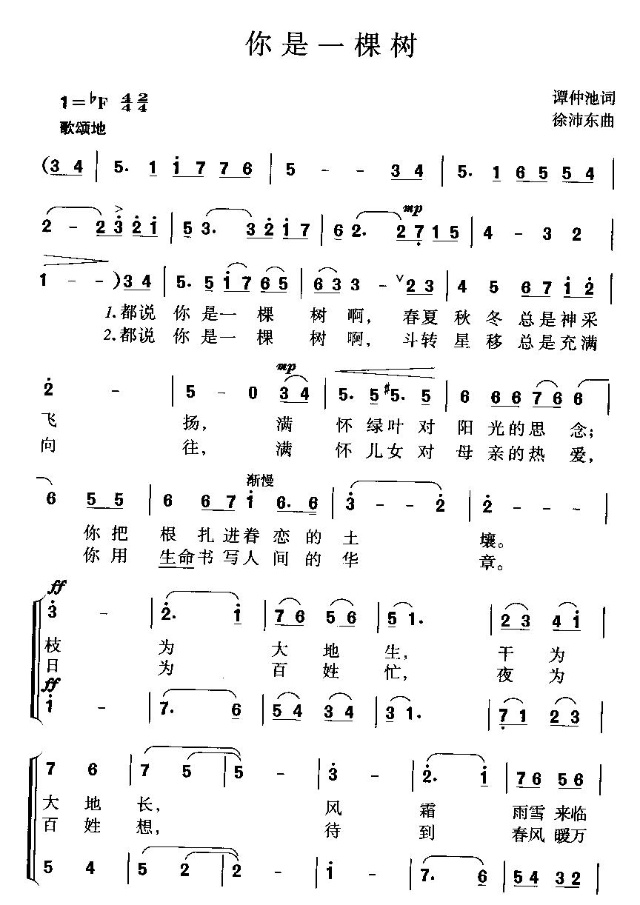 你是一棵树
1=♭F 4/4 2/4
谭仲池词
歌颂地
徐沛东曲
(3 4 | 5. 1 i 7 7 6 | 5 - - 3 4 | 5. 1 6 5 5 4 |
mp
2 - 2 3 2 i | 5 3. 3 2 i 7 | 6 2. 2 7 1 5 | 4 - 3 2 |
1 - - ) 3 4 | 5. 5 i 7 6 5 | 6 3 3 - 2 3 | 4 5 6 7 i 2 |
1.都说 你是一 棵 树 啊, 春夏 秋冬总是神采
2.都说 你是一 棵 树 啊, 斗转 星移总是充满
mp
2 - | 5 - 0 3 4 | 5. 5 #5. 5 | 6 6 6 7 6 6 |
飞 扬, 满 怀绿叶对 阳光的思 念;
向 往, 满 怀儿女对 母亲的热 爱,
渐慢
6 5 5 | 6 6 7 i 6. 6 | 3 - - 2 | 2 - -
你把 根扎进眷恋的土 壤。
你用 生命书写人间的华 章。
ff
3 - | 2. i | 7 6 5 6 | 5 - - | 2 3 4 i |
枝 为 大地生, 干为
日 为 百姓忙, 夜为
ff
i - | 7. 6 | 5 4 3 4 | 3 1. | 7 1 2 3 |
7 6 | 7 5 | 5 - | 3 - | 2. i | 7 6 5 6 |
大地 长, 风 霜 雨雪来临
百姓 想, 待 到 春风暖万
5 4 | 5 2 | 2 - | i - | 7. 6 | 5 4 3 2 |